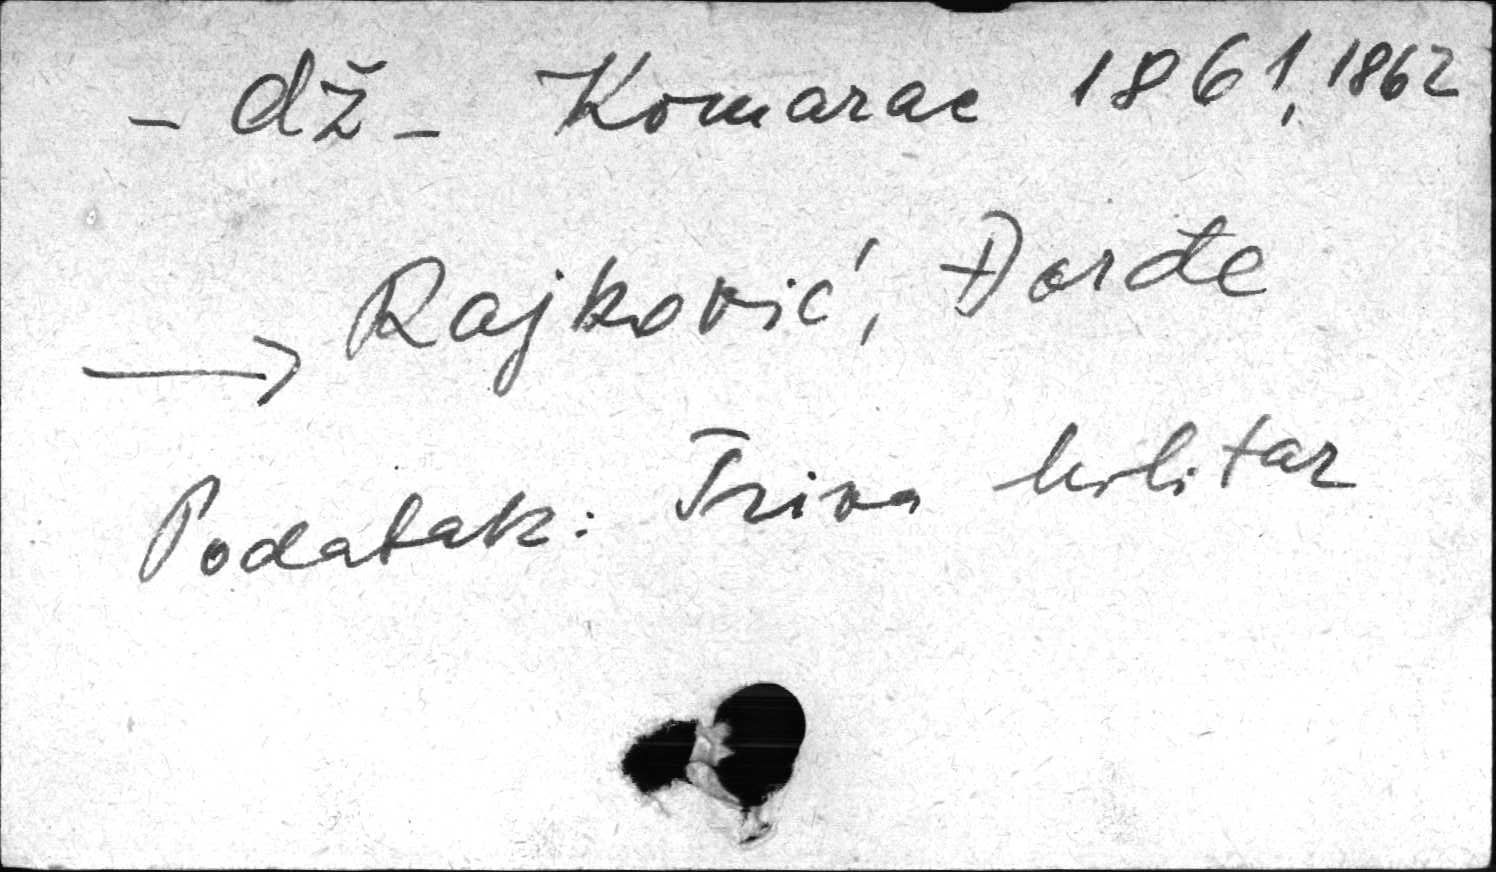 - dž - Komarac 1861, 1862
→ Rajković, Đorđe
Podatak: Triva Militar